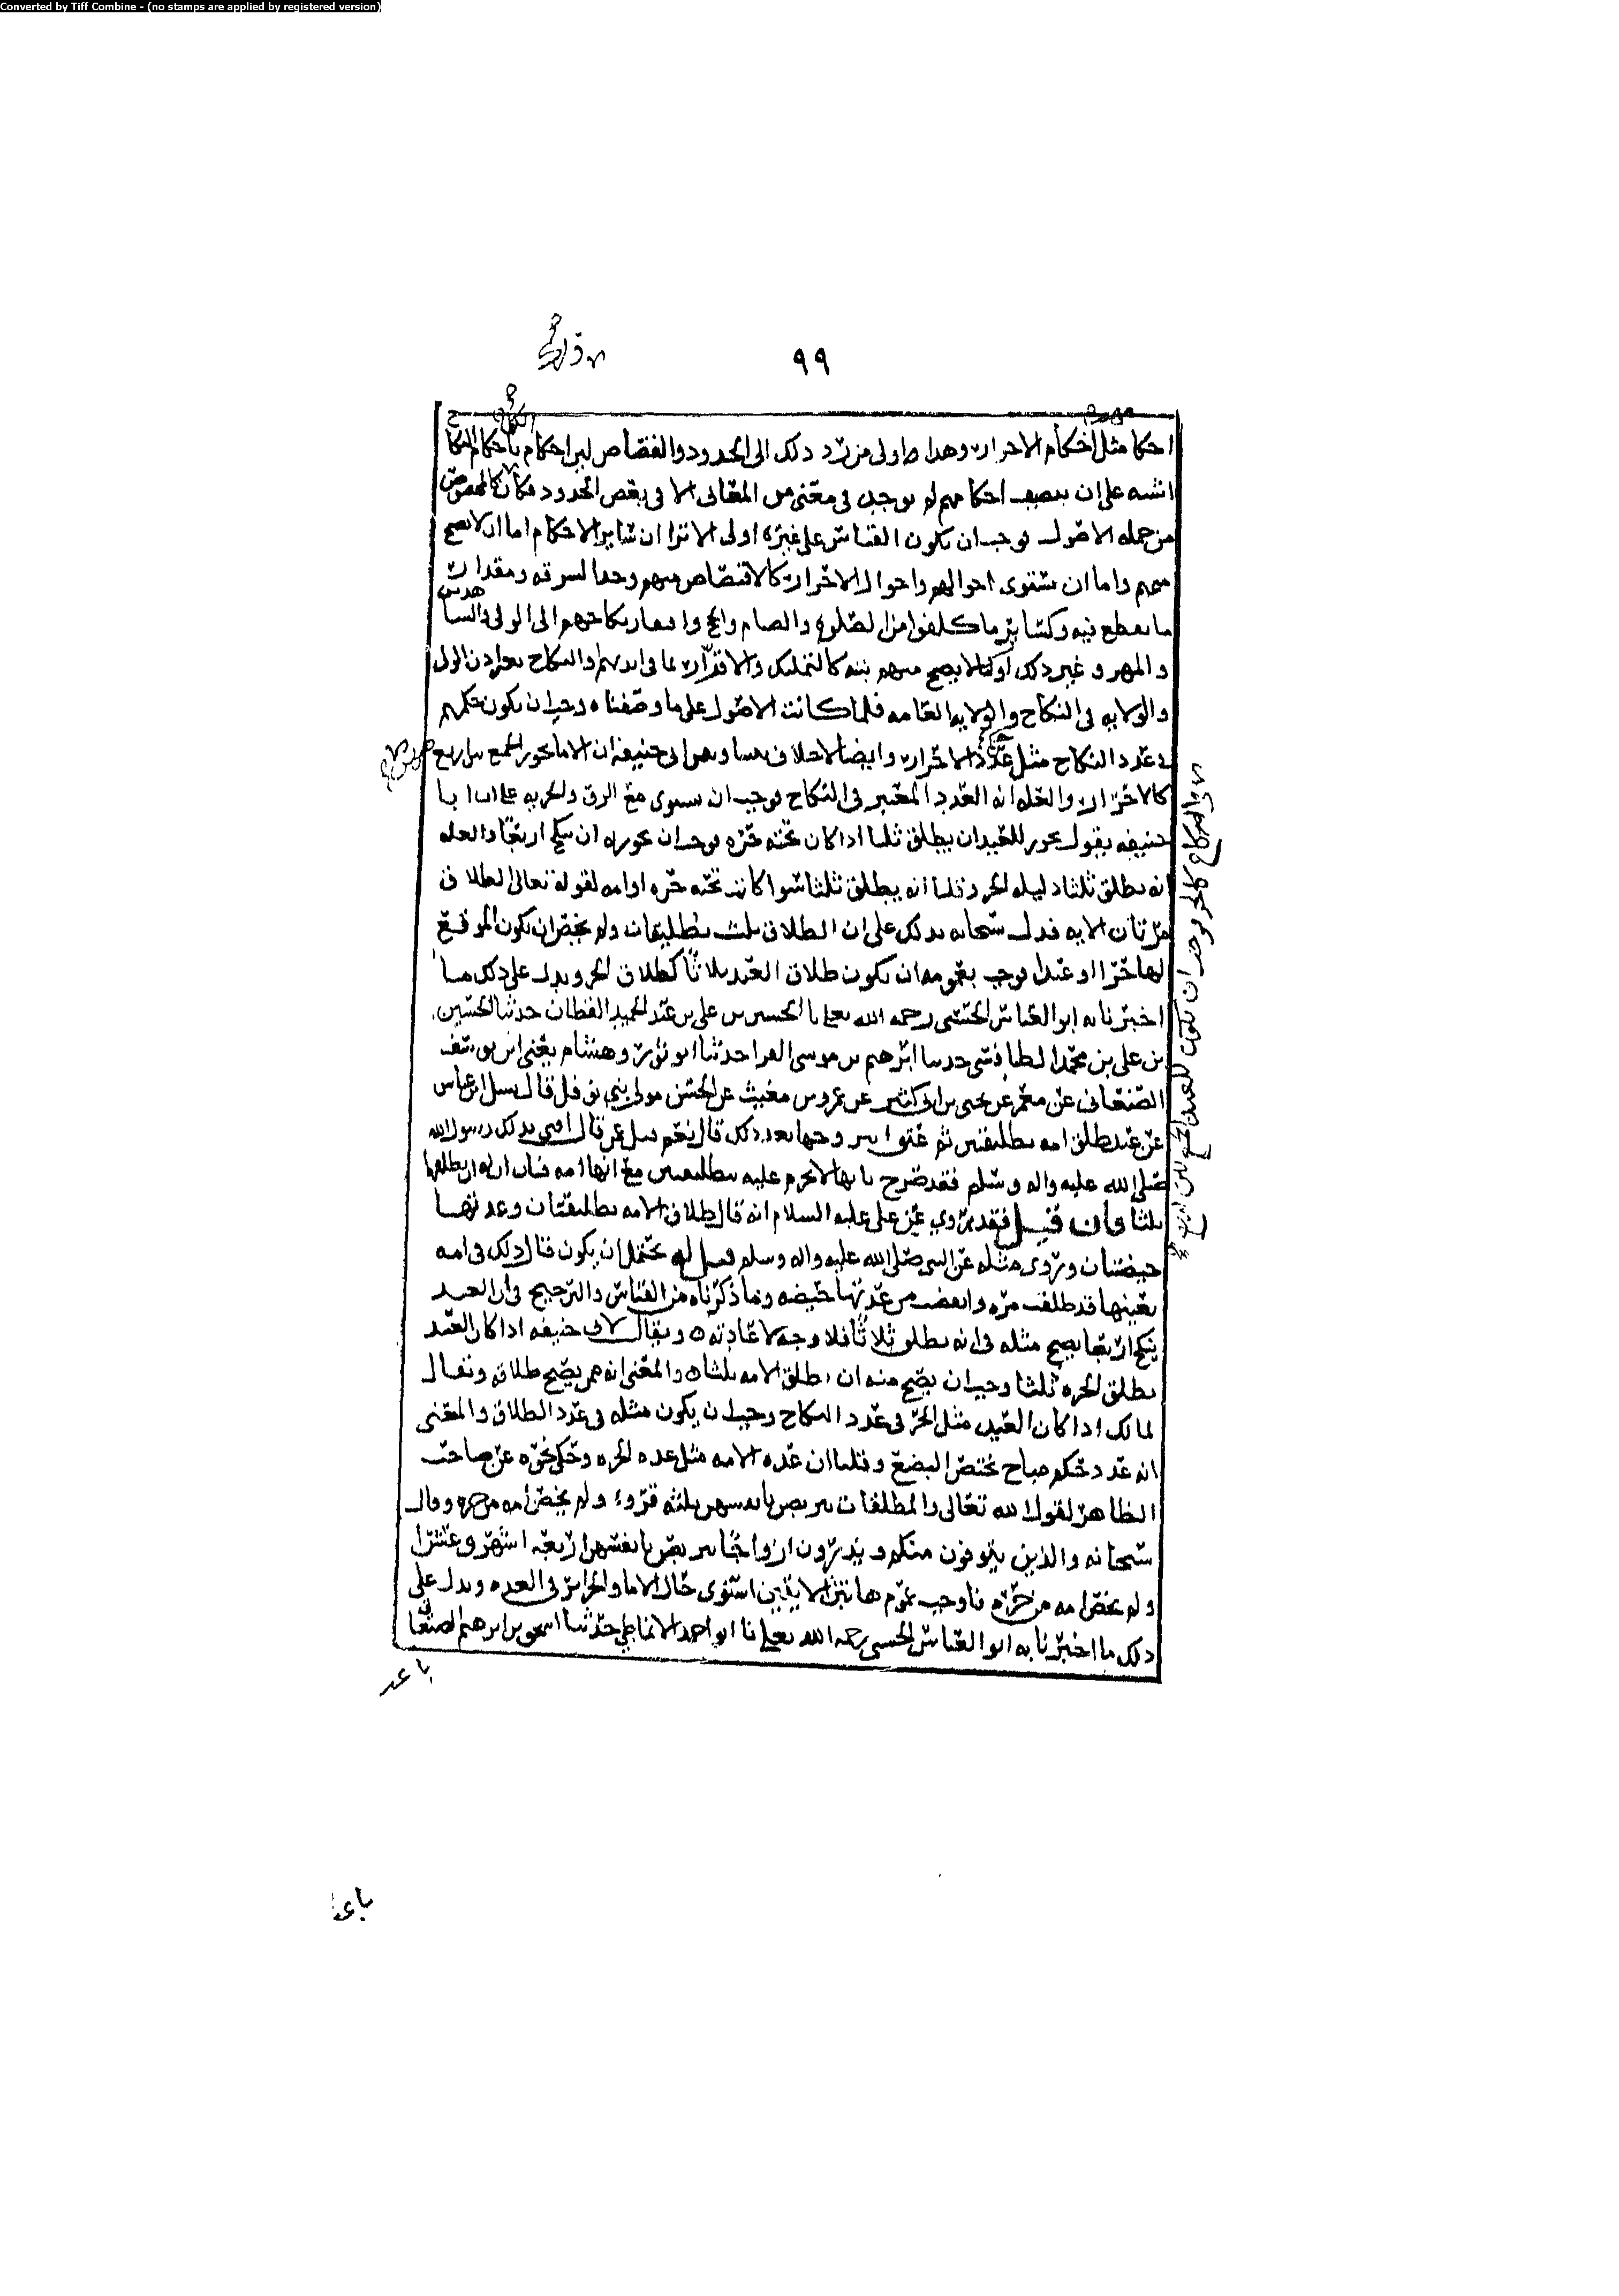 Converted by Tiff Combine - (no stamps are applied by registered version)
٩٩
احكا مثل احكام الاحرار وهذا اولى من رد ذلك الى الحدود والقصاص لان احكام النكاح باحكام
اشبه على ان تنصيف احكامهم لم يوجد في معنى من المعاني الا في بعض الحدود فكان كالمخصوص
من جمله الاصول فوجب ان يكون القياس على غيره اولى الا ترا ان سائر الاحكام اما ان لا تصح
منهم واما ان تستوي احوالهم واحوال الاحرار كالاقتصاص منهم وحد السرقه ومقدار
ما يقطع فيه وكسائر ما كلفوا من الصلوه والصيام والحج وافتقار نكاحهم الى الولي والشاهدين
والمهر وغير ذلك او كما لا يصح منهم بته كالتمليك والاقرار بما في ايديهم والنكاح بغير اذن الولي
والولايه في النكاح والولايه العامه فلما كانت الاصول على ما وصفناه وجب ان يكون حكمهم
في عدد النكاح مثل عدد الاحرار وايضا لا خلاف بيننا وبين ابي حنيفه ان الاما يجوز الجمع بين اربع
كالاحرار والعله انه العدد المعتبر في النكاح فوجب ان يستوي مع الرق والحريه على ان ابا
حنيفه يقول يجوز للعبد ان يطلق ثلثا اذا كان تحته حره فوجب ان يجوز له ان ينكح اربعا والعله
انه يطلق ثلثا دليله الحر وقلنا انه يطلق ثلثا سوا كانت تحته حره او امه لقوله تعالى الطلاق
مرتان الايه فدل سبحانه بذلك على ان الطلاق ثلث تطليقات ولم يخص ان يكون الموقع
لها حرا او عبدا فوجب بعمومه ان يكون طلاق العبد ثلاثا كطلاق الحر ويدل على ذلك ما
اخبرنا به ابو العباس الحسني رحمه الله تعالى انا الحسين بن علي بن عبد الحميد القطان حدثنا الحسين
بن علي بن محمد الطنافسي حدثنا ابرهيم بن موسى الفرا حدثنا ابو ثور وهشام يعني ابن يوسف
الصنعاني عن معمر عن يحيى بن ابي كثير عن عمرو بن مغيث عن الحسن مولى بني نوفل قال سئل ابن عباس
عن عبد طلق امه تطليقتين ثم عتقا ايتزوجها بعد ذلك قال نعم قيل عمن قال افتى بذلك رسول الله
صلى الله عليه واله وسلم فقد صرح بانها لا تحرم عليه بتطليقتين مع انها امه فبان ان له ان يطلقها
ثلثا فان قيل فقد روي عن علي عليه السلام انه قال طلاق الامه تطليقتان وعدتها
حيضتان وروى مثله عن النبي صلى الله عليه واله وسلم قيل له يحتمل ان يكون قال ذلك في امه
بعينها قد طلقت مره وانقضت من عدتها حيضه وما ذكرناه من القياس والترجيح في ان العبد
ينكح اربعا يصح مثله في انه يطلق ثلاثا فلا وجه لاعادته ه ويقال لابي حنيفه اذا كان العبد
يطلق الحره ثلثا وجب ان يصح منه ان يطلق الامه ثلثا ه والمعنى انه ممن يصح طلاقه ويقال
لمالك اذا كان العبد مثل الحر في عدد النكاح وجب ان يكون مثله في عدد الطلاق والمعنى
انه عدد حكم مباح يختص البضع وقلنا ان عده الامه مثل عده الحره وحكي نحوه عن صاحب
الظاهر لقول الله تعالى والمطلقات يتربصن بانفسهن ثلثه قروء ولم يخص امه من حره وقال
سبحانه والذين يتوفون منكم ويذرون ازواجا يتربصن بانفسهن اربعه اشهر وعشرا
ولم يخص امه من حره فاوجب عموم هاتين الايتين استوى حال الاما والحراير في العده ويدل على
ذلك ما اخبرنا به ابو العباس الحسني رحمه الله تعالى انا ابو احمد الانماطي حدثنا اسحق بن ابرهيم الصنعاني
في النكاح كالحر فوجب ان يكون للعبد الجمع بين اربع